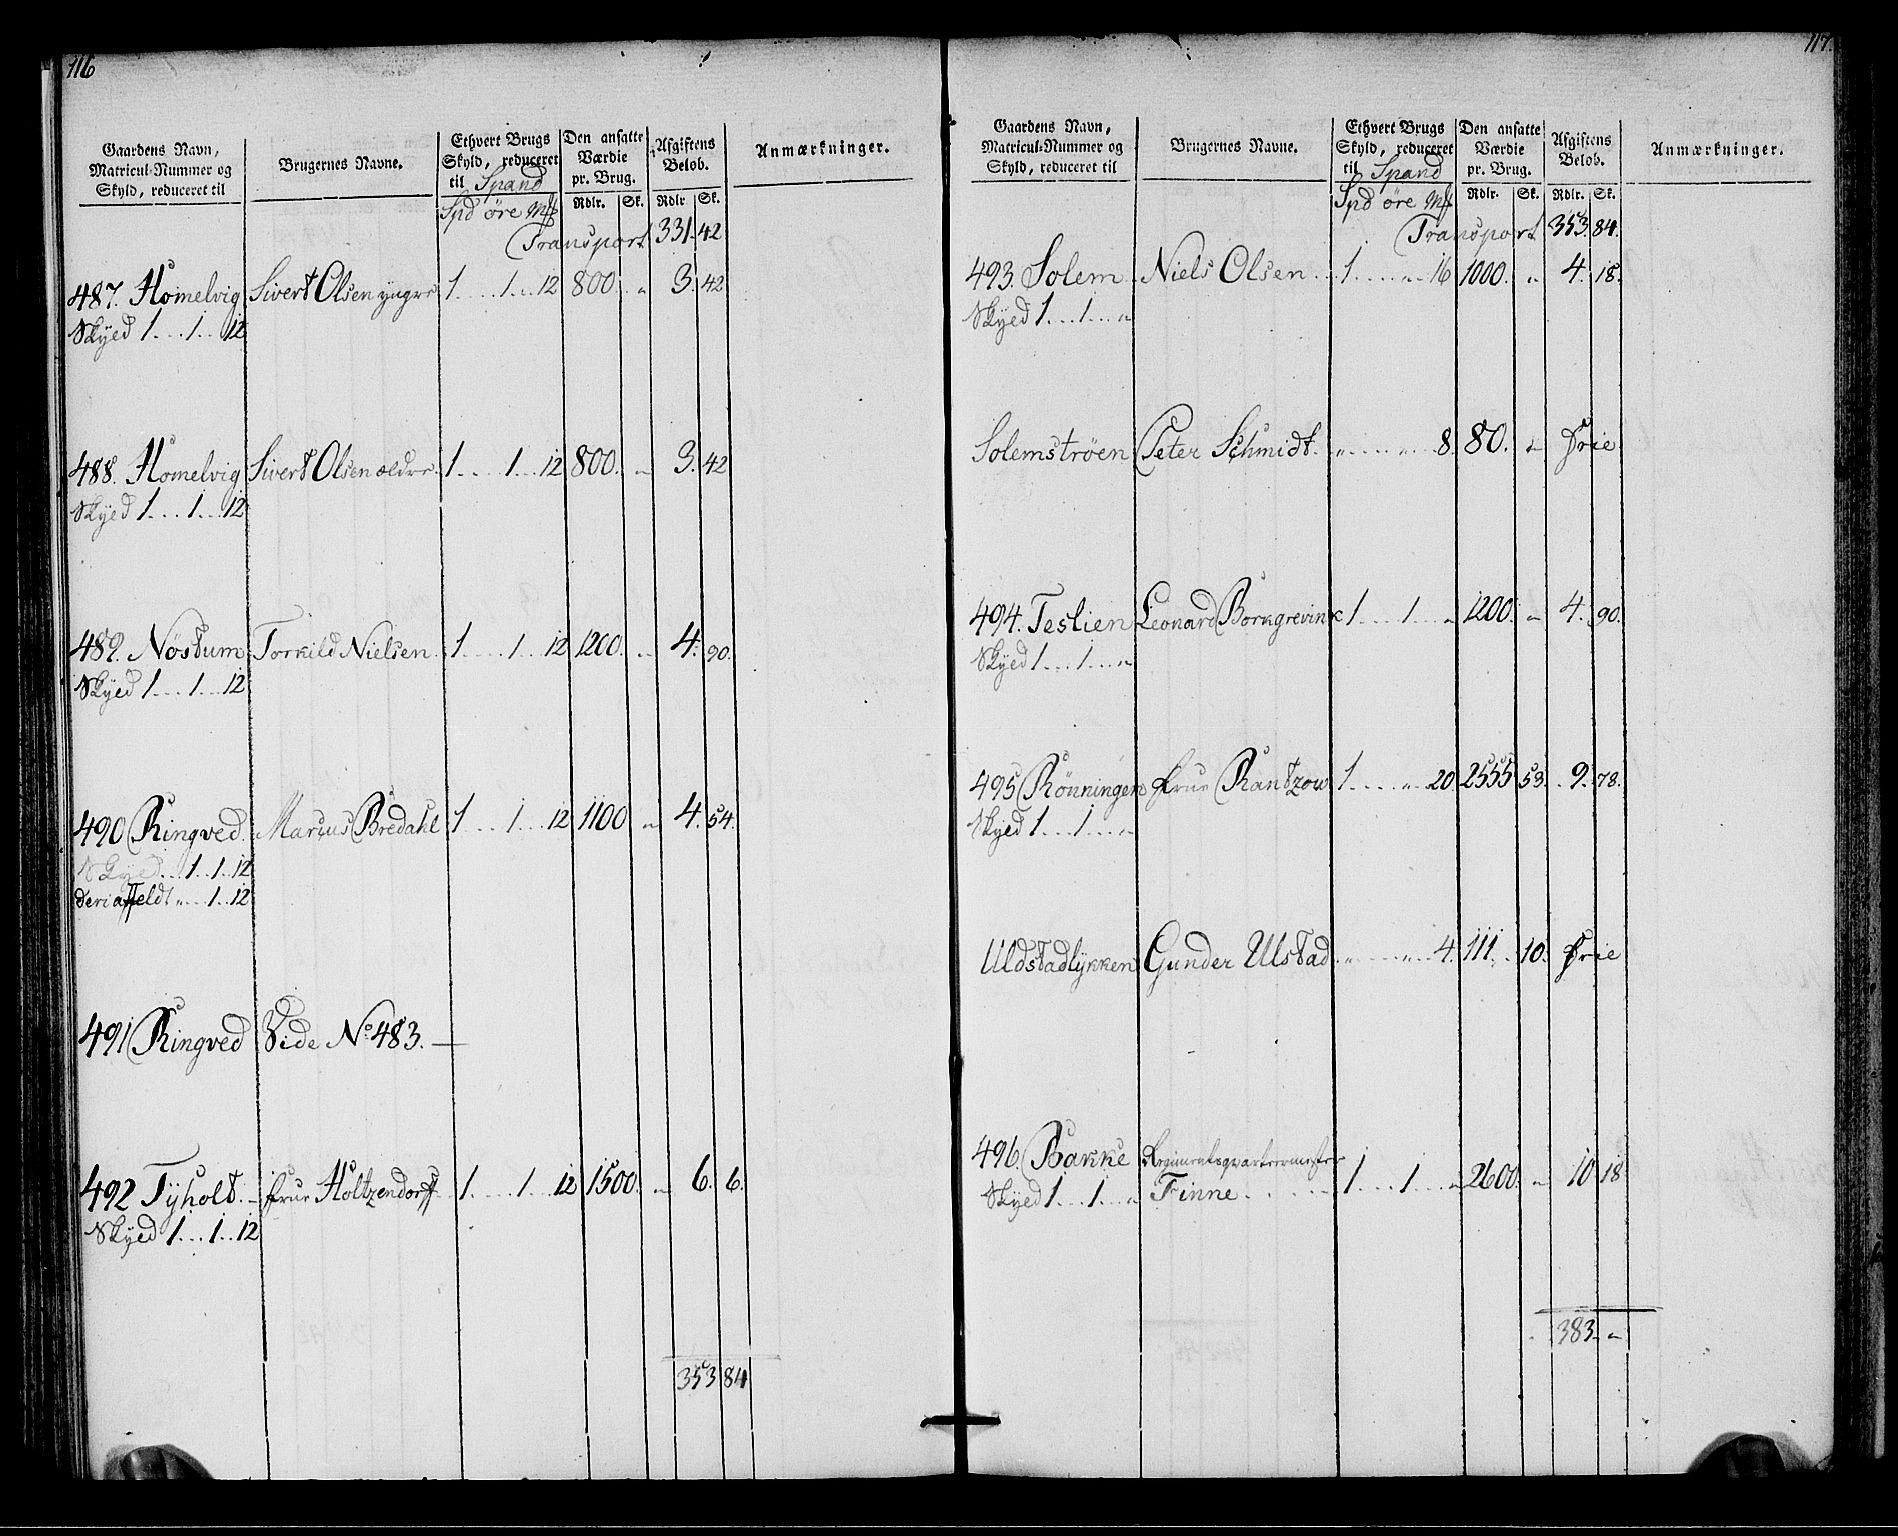 116
Gaardens Navn, Matricul-Nummer og Skyld, reduceret til
Brugernes Navne.
Ethvert Brugs Skyld, reduceret til Spand
Spd øre Mk
Den ansatte Værdie pr. Brug.
Rdlr. Sk.
Afgiftens Belob.
Rdlr. Sk.
Anmærkninger.
Transport 331. 42
487. Homelvig Sivert Olsen yngre 1 . . . . 1 . . . 12 800. „ 3. 42
Skyed 1 . . . 1 . . . 12
488. Homelvig Sivert Olsen ældre 1 . . . . 1 . . . 12 800. „ 3. 42
Skyed 1 . . . 1 . . . 12
489. Nøstum Torkild Nielsen 1 . . . . 1 . . . 12 1200. „ 4. 90.
Skyed 1 . . . 1 . . . 12
490 Ringved Marcus Bredahl 1 . . . . 1 . . . 12 1100 „ 4. 54.
Skyed . . . 1 . . 1 . . 12
deri affeldt „ . . . 1 . . 12
491 Ringved Vide No 483. —
492 Tyholt. — frue Holtzendorff 1 . . . . 1 . . . 12 1500. „ 6. 6.
Skyed 1 . . . 1 . . 12
353 84
117.
Gaardens Navn, Matricul-Nummer og Skyld, reduceret til
Brugernes Navne.
Ethvert Brugs Skyld, reduceret til Spand
Spd øre Mk
Den ansatte Værdie pr. Brug.
Rdlr. Sk.
Afgiftens Belob.
Rdlr. Sk.
Anmærkninger.
Transport 353. 84.
493. Solem Niels Olsen . . . 1 . . . . „ . . 16 1000. „ 4. 18.
Skyed 1 . . . 1 . . . „
Solemstrøen Peter Schmidt. . „ . . . . „ . . 8. 80. „ Frie
494. Teslien Leonard Borkgrevink 1 . . . . 1 . . . „ 1200. „ 4. 90.
Skyed 1 . . . 1 . . . „
495 Rönningen frue Rantzow 1 . . . . „ . . 20. 2555 53. 9. 78.
Skyed 1 . . . 1 . . . „
Uldstadlykken Gunder Ulstad . „ . . . . „ . . 4. 111. . 10. Frie
496. Bakke Regimentsqvarteermester
Skyed 1 . . . 1 . . „ Finne . . . . . . 1 . . . . 1 . . . „ 2600. „ 10 18
383. „